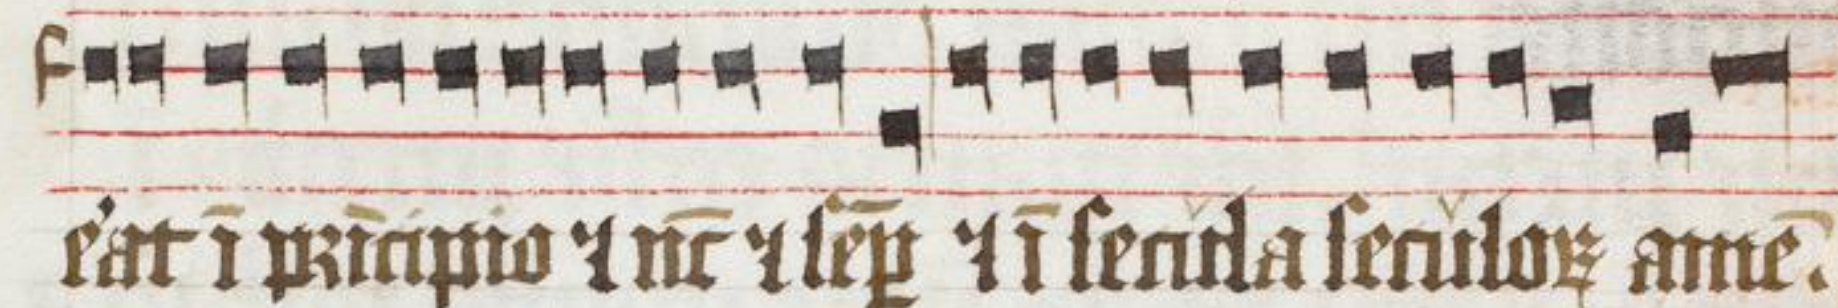 e᷑at ī pᷣncipio ⁊ nc̄ ⁊ sēꝑ ⁊ ī secula seculoꝝ amē.